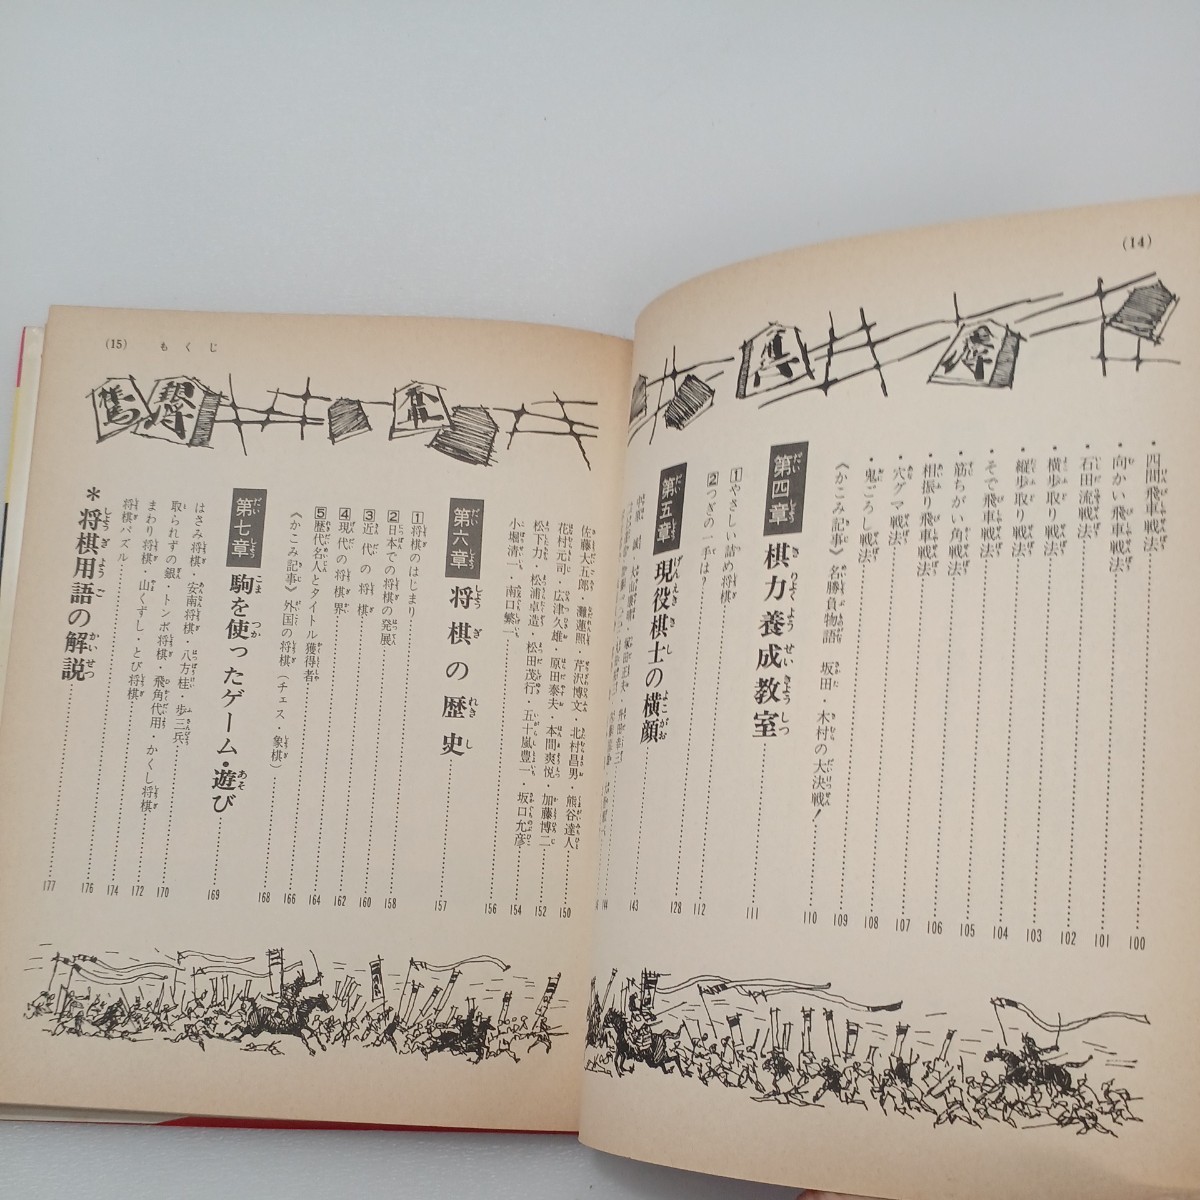 (14)
・四間飛車戦法 100
・向かい飛車戦法 101
・石田流戦法 102
・横歩取り戦法 103
・縦歩取り戦法 104
・そで飛車戦法 105
・筋ちがい角戦法 106
・相振り飛車戦法 107
・穴グマ戦法 108
・鬼ごろし戦法 109
《かこみ記事》名勝負物語 坂田・木村の大決戦! 110
第四章 棋力養成教室 111
1やさしい詰め将棋 112
2つぎの一手は? 128
第五章 現役棋士の横顔 143
144
(15) もくじ
佐藤大五郎・灘蓮照・芹沢博文・北村昌男・熊谷達人 150
花村元司・広津久雄・原田泰夫・本間爽悦・加藤博二 152
松下力・松浦卓造・松田茂行・五十嵐豊一・坂口允彦 154
小堀清一・南口繁一 156
第六章 将棋の歴史 157
1将棋のはじまり 158
2日本での将棋の発展 160
3近代の将棋 162
4現代の将棋界 164
5歴代名人とタイトル獲得者 166
《かこみ記事》外国の将棋(チェス・象棋) 168
第七章 駒を使ったゲーム・遊び 169
はさみ将棋・安南将棋・八方桂・歩三兵 170
取られずの銀・トンボ将棋・飛角代用・かくし将棋 172
まわり将棋・山くずし・とび将棋 174
将棋パズル 176
*将棋用語の解説 177